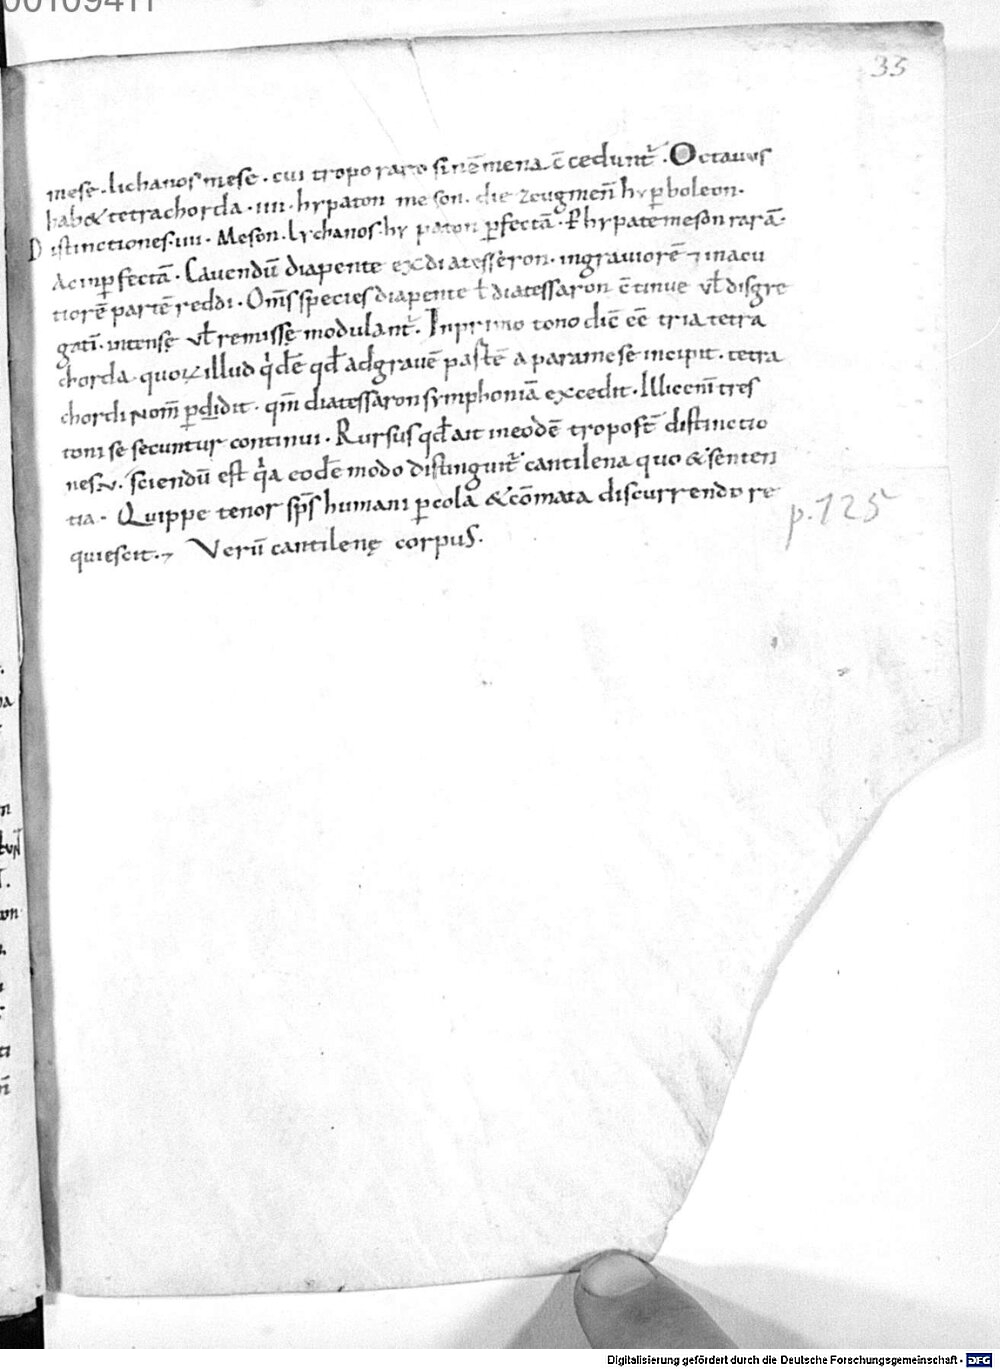 00109411
33
mesę. lichanos mese. cui tropo raro sinēmena c̄ceduntr̄. Octauus
hab& tetrachorda. IIII. hypaton meson. die zeugmen̄ hyp̄boleon.
Distinctiones. IIII. Meson. Lychanos. hypaton p̄fectā. Phypatemeson rarā.
Ac inp̄fectā. Cauendū diapente ex diatessèron. in grauiorē ⁊ in acu
tiorē partē reddi. Om̄s species diapente ł diatessaron c̄tinue vł disgre
gatī. intensę vł remissę modulantr̄. In primo tono dic̄ eē tria tetra
chorda. quoꝝ illud q̇dē qđ ad grauē pastē a paramese incipit. tetra
chordi nom̄ p̄didit. qm̄ diatessaron symphoniā excedit. Illic enī tres
toni se secuntur continui. Rursus qđ ait in eodē tropo st̄ distinctio
nes. V. sciendū est q̇a eodē modo distinguitr̄ cantilena quo & senten
tia. Quippe tenor sp̄s humani p̄ cola & cōmata discurrendo re
quiescit. ⁊ Verū cantilenę corpus.
p. 125
Digitalisierung gefördert durch die Deutsche Forschungsgemeinschaft - DFG